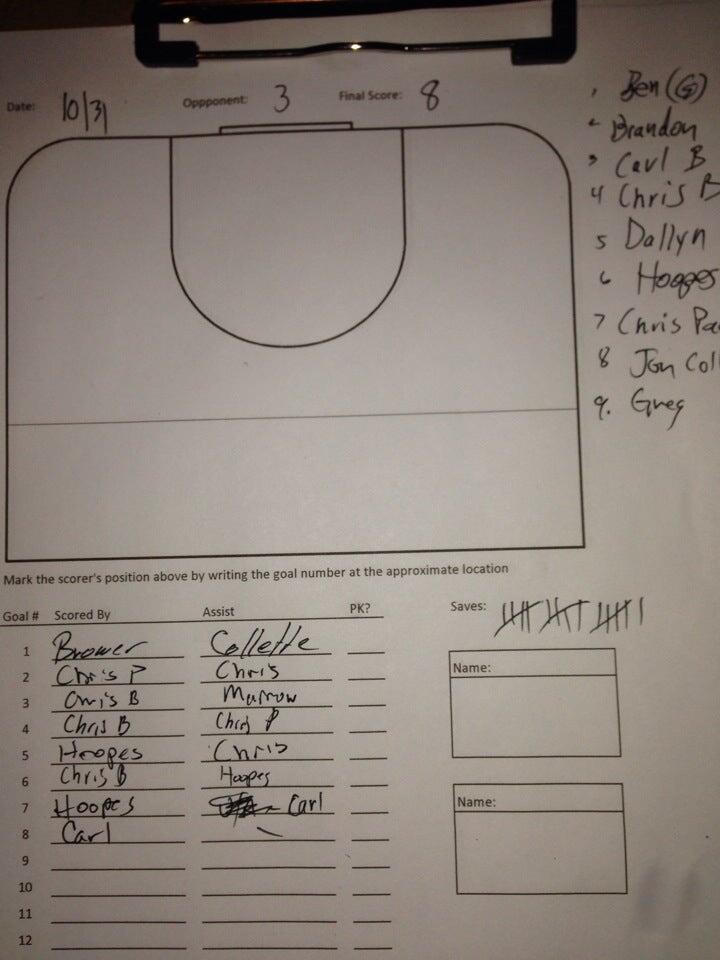 Date: 10/31 Oppponent: 3 Final Score: 8
1 Ben (G)
2 Brandon
3 Carl B
4 Chris B
5 Dallyn
6 Hoopes
7 Chris Pa
8 Jon Coll
9. Greg
Mark the scorer's position above by writing the goal number at the approximate location
Goal # Scored By Assist PK? Saves:
1 Brower Collette
2 Chris P Chris
3 Chris B Murrow
4 Chris B Chris P
5 Hoopes Chris
6 Chris B Hoopes
7 Hoopes Carl
8 Carl
9
10
11
12
Name:
Name: